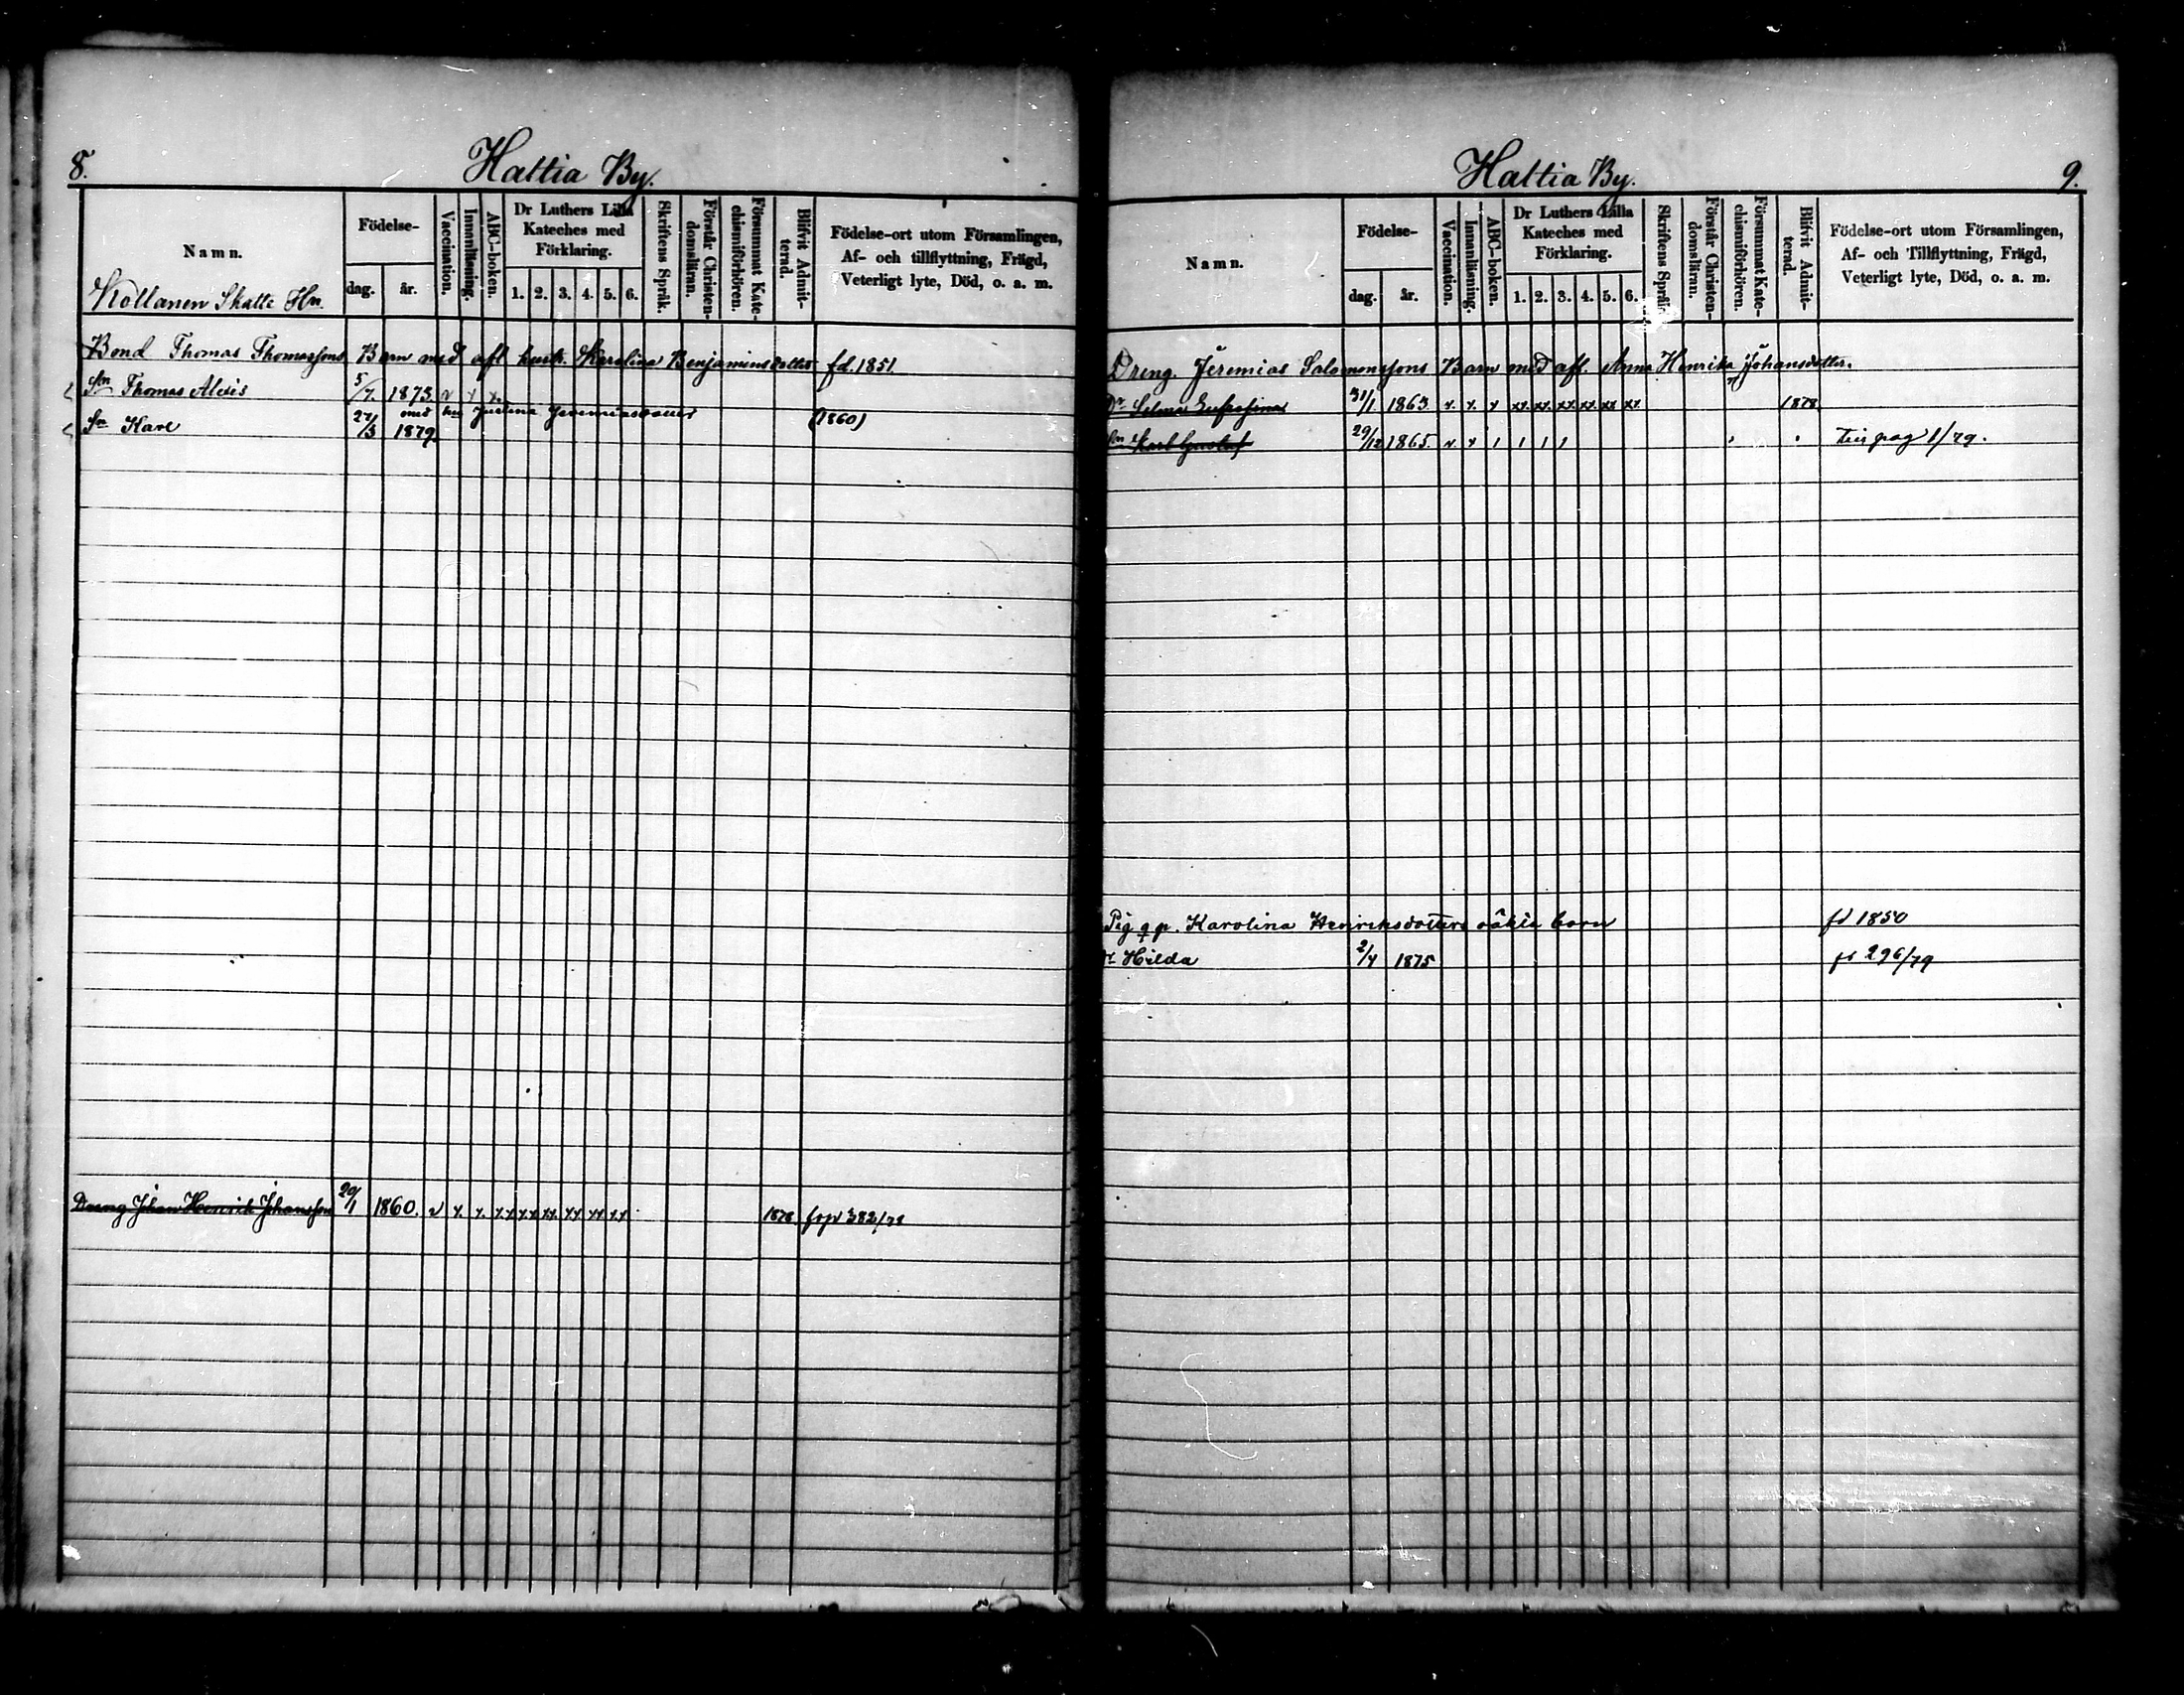 8.
Hattia By.
Namn.
Kollanen Skatte Hn.
Födelse-
dag.
år.
Vaccination.
Innanläsning.
ABC-boken.
Dr Luthers Lilla
Kateches med
Förklaring.
1. 2. 3. 4. 5. 6.
Skriftens Språk.
Förstår Christen-
domsläran.
Försummat Kate-
chismiförhören.
Blifvit Admit-
terad.
Födelse-ort utom Församlingen,
Af- och tillflyttning, Frägd,
Veterligt lyte, Död, o. a. m.
Bond Thomas Thomassons Barn med afl hust. Karolina Benjaminsdotter fd. 1851.
Sn Thomas Alexis 5/7. 1873 v x x
med hu Justina Jeremiasdotter (1860)
Sn Karl 27/3 1879.
Dreng Johan Henrik Johansson 29/1 1860. v x. x. xx xx xx. xx xx xx 1878 382/78
Hattia By.
9.
Namn.
Födelse-
dag.
år.
Vaccination.
Innanläsning.
ABC-boken.
Dr Luthers Lilla
Kateches med
Förklaring.
1. 2. 3. 4. 5. 6.
Skriftens Språk.
Förstår Christen-
domsläran.
Försummat Kate-
chismiförhören.
Blifvit Admit-
terad.
Födelse-ort utom Församlingen,
Af- och Tillflyttning, Frägd,
Veterligt lyte, Död, o. a. m.
Dreng. Jeremias Salomonssons Barn med afl. Anna Henrika Johansdotter.
Dr Selma Eufrosina 31/1. 1863. v. x. x xx. xx. xx. xx. xx xx 1878
Sn Karl Gustaf 29/12 1865. v x 1 1 1 1 pag 1/79.
Pig q p. Karolina Henriksdotters oäkta barn fd 1850
Dr Hilda 2/4 1875 296/79